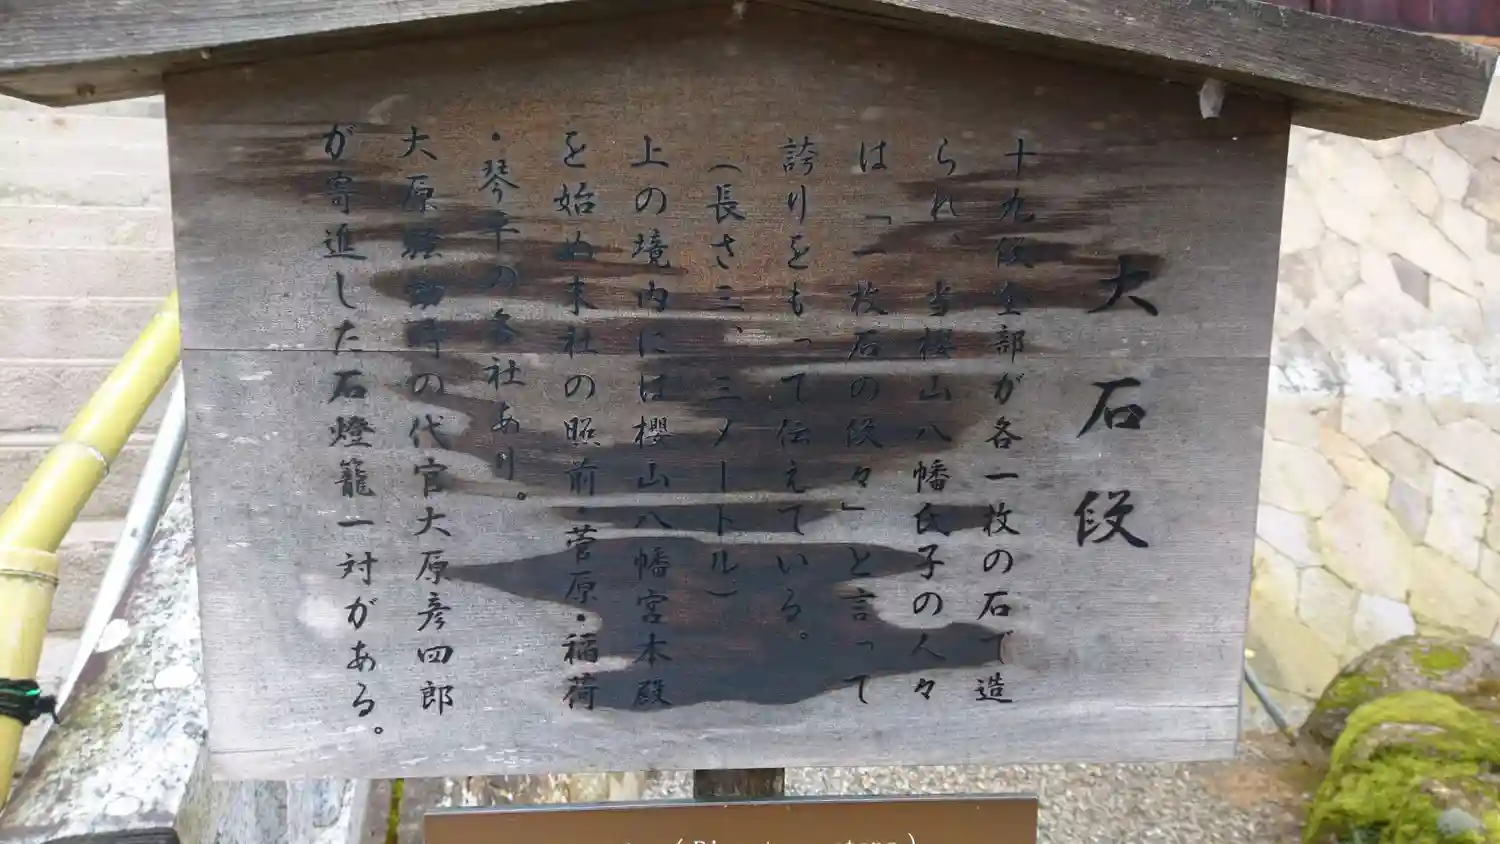 大石段
十九段全部が各一枚の石で造
られ、当櫻山八幡氏子の人々
は「一枚石の段々」と言って
誇りをもって伝えている。
(長さ三、三メートル)
上の境内には櫻山八幡宮本殿
を始め末社の照前・菅原・稲荷
・琴平の各社あり。
大原騒動時の代官大原彦四郎
が寄進した石燈籠一対がある。